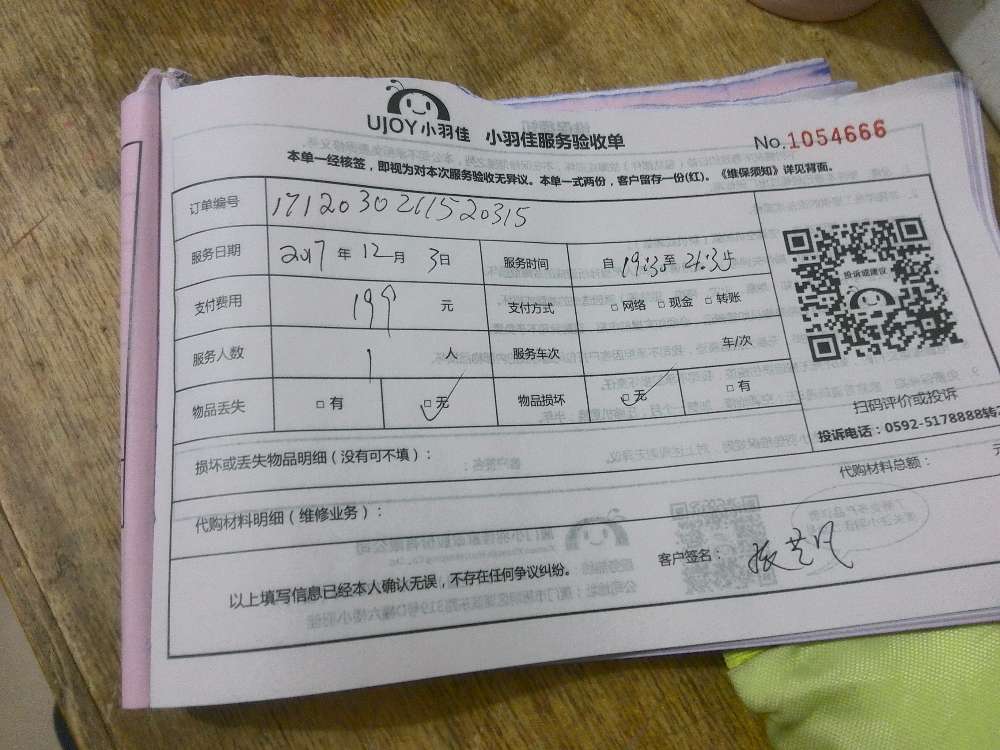 UJOY小羽佳 小羽佳服务验收单 No.1054666
本单一经核签，即视为对本次服务验收无异议。本单一式两份，客户留存一份(红)。《维保须知》详见背面。
订单编号
服务日期 2017 年 12 月 3日 服务时间 自 19:30 至 21:35
支付费用 199 元 支付方式 □ 网络 □ 现金 □ 转账
服务人数 1 人 服务车次 车/次
物品丢失 □ 有 □ 无 物品损坏 □ 无 □ 有
投诉或建议
扫码评价或投诉
投诉电话：0592-5178888转
损坏或丢失物品明细（没有可不填）：
代购材料明细（维修业务）： 代购材料总额：
以上填写信息已经本人确认无误，不存在任何争议纠纷。 客户签名：